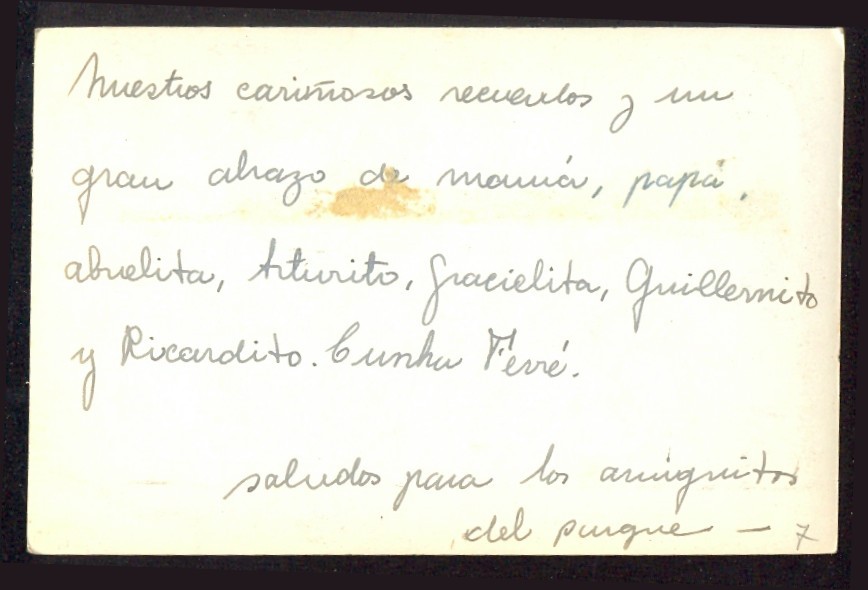 Nuestros cariñosos recuerdos y un
gran abrazo de mamá, papá,
abuelita, Arturito, Gracielita, Guillermito
y Ricardito. Cunha Ferré.
saludos para los amiguitos
del parque — 7